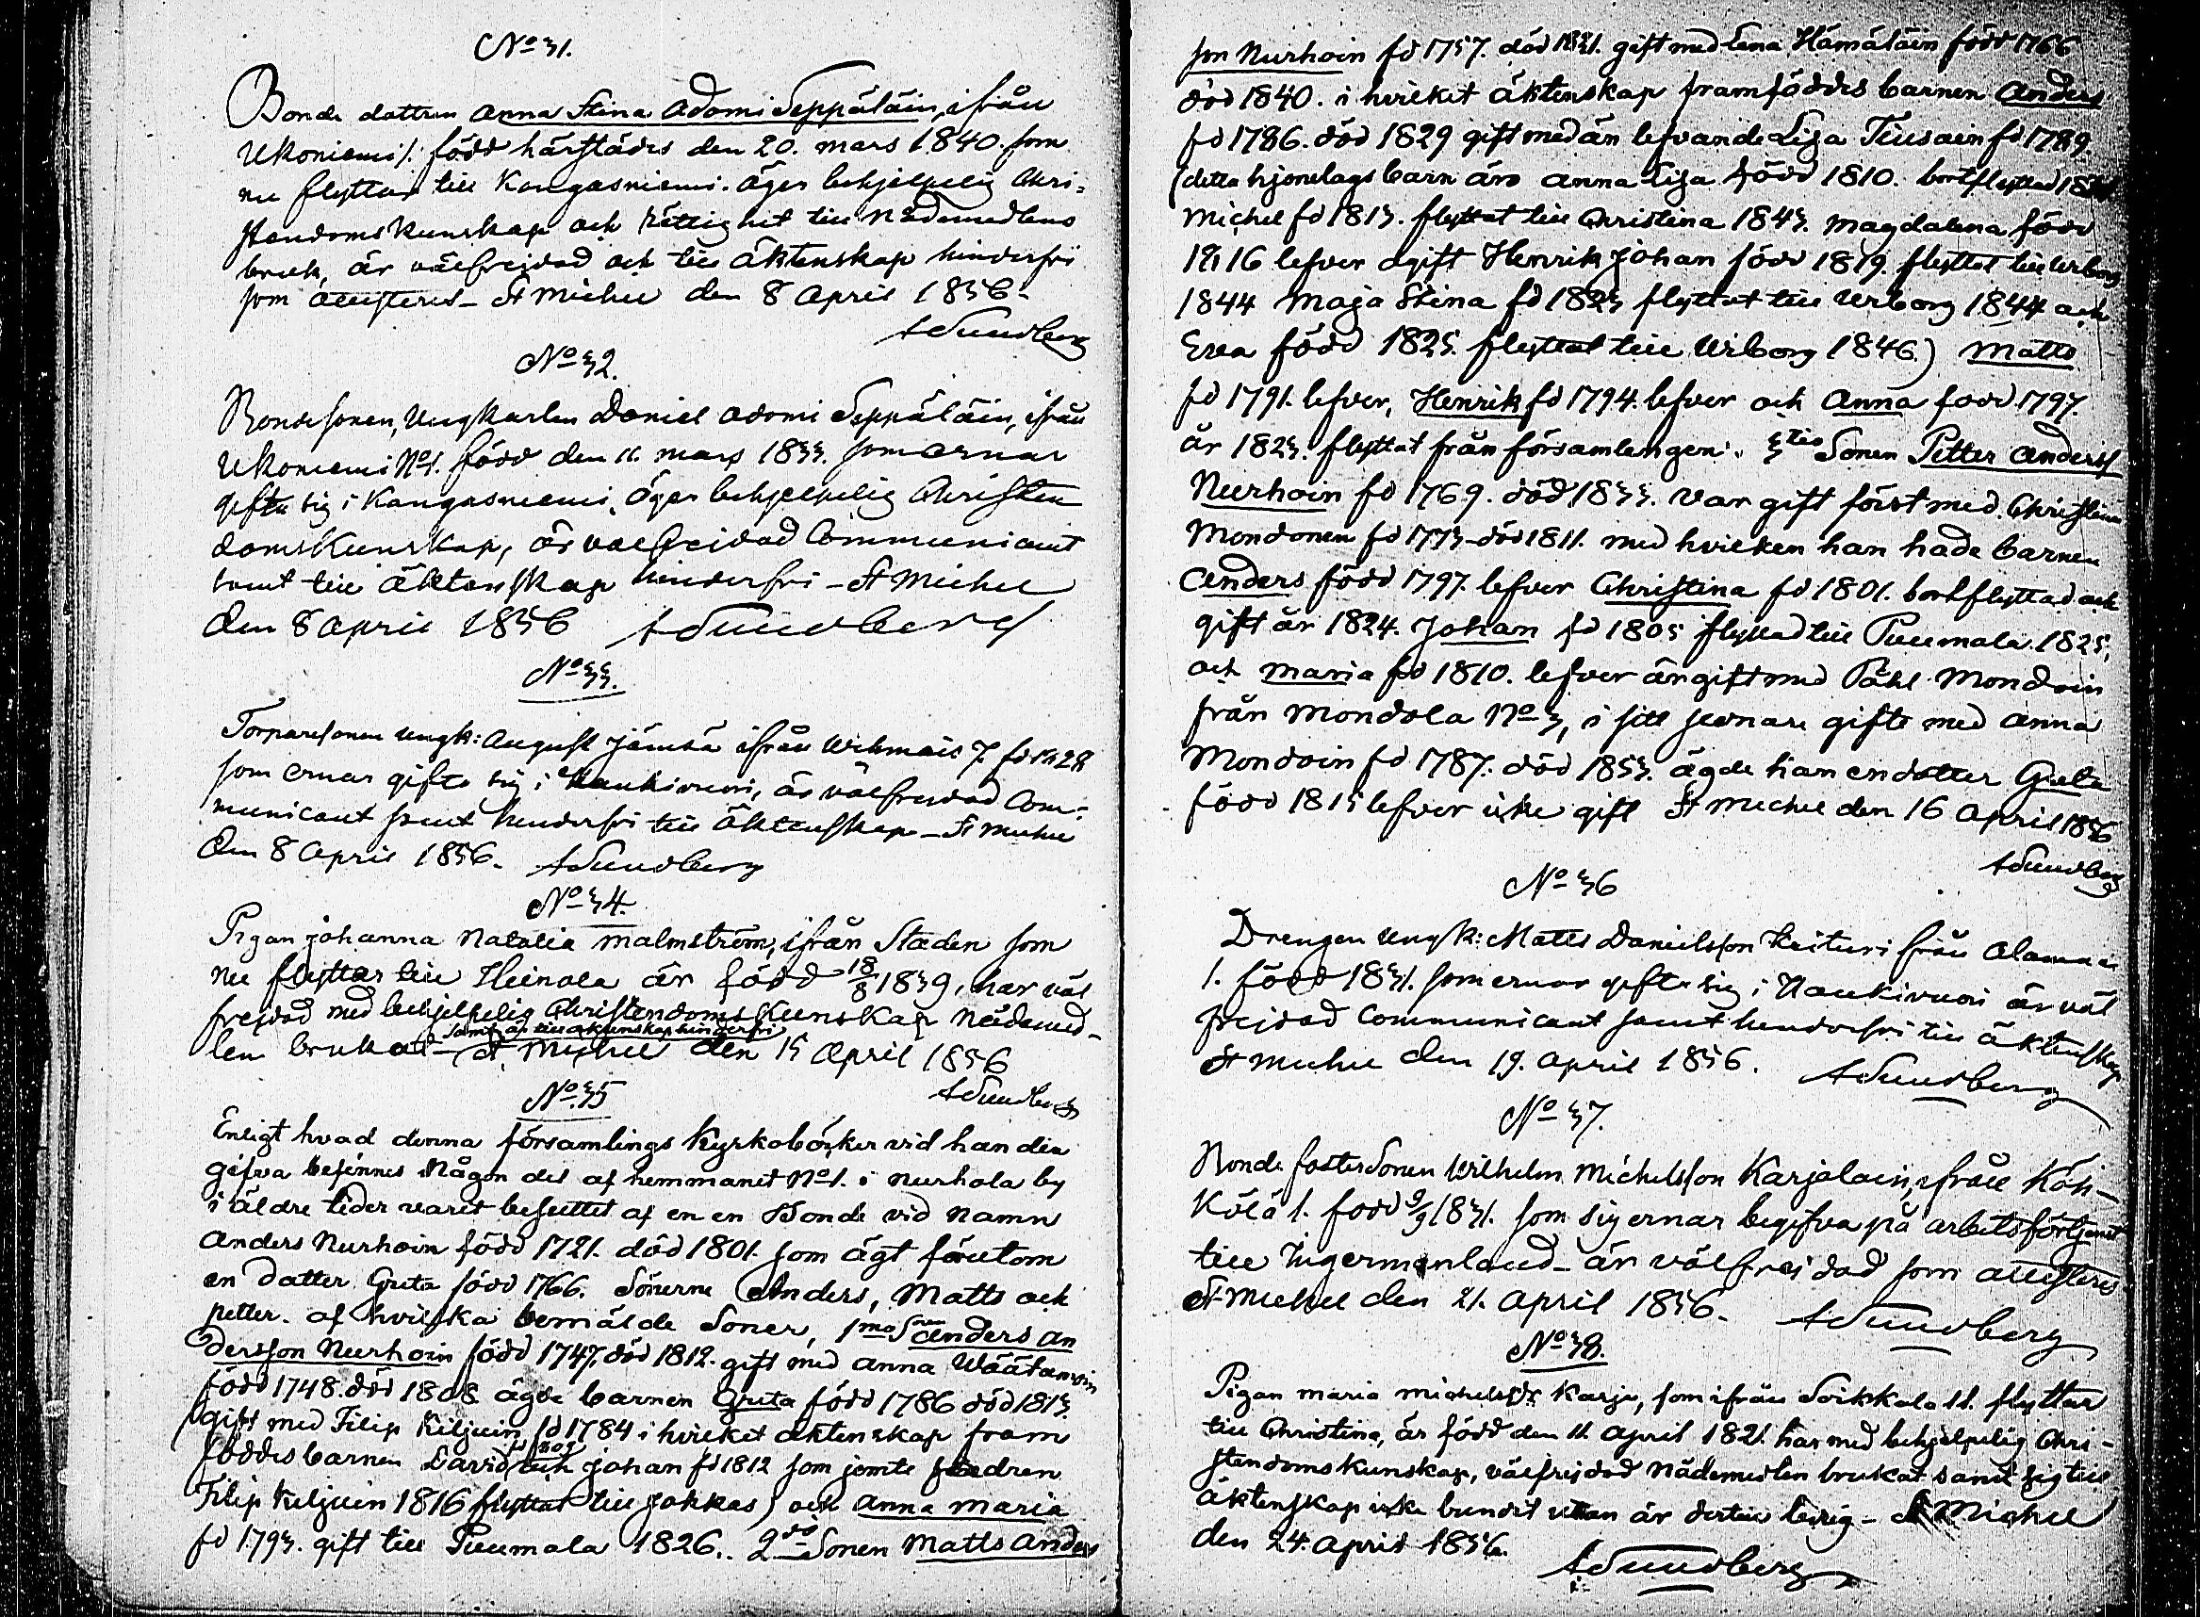 No 31.
Bonde dottren Anna Stina Adami Seppäläin, ifrån
Ukoniemi 1. född härstädes den 20. mars 1840. som
nu flyttar till Kangasniemi. äger behjelpelig Chri-
stendoms kunskap och rättighet till nådemedlens
bruk, är välfrejdad och till äktenskap hinderfri
som attesteras - St Michel den 8 April 1856-
A Sundberg
No 32.
Bondesonen, Ungkarlen Daniel Adami Seppäläin, ifrån
Ukoniemi No 1. född den 11. mars 1833. som ernar
gifta sig i Kangasniemi, äger behjelpelig Christen
domskunskap, är välfrejdad Communicant
samt till äktenskap hinderfri - St Michel
den 8 April 1856 A Sundberg
No 33.
Torparesonen ungk: August Jämsä ifrån Wehmais 7. fd 1828
som ernar gifta sig i Haukivuori, är välfrejdad Com-
municant samt hinderfri till äktenskap - St Michel
den 8 April 1856. A Sundberg
No 34.
Pigan Johanna Natalia Malmström, ifrån Staden som
nu flyttar till Heinola är född 18/8 1839, har väl
frejdad med behjelpelig Christendomskunskap nådemed-
samt är till äktenskap hinderfri
len brukat - St Michel den 15 April 1856
A Sundberg
No 35
Enligt hvad denna församlings Kyrkoböcker vid handen
gifva befinnes Någon del af hemmanet No 1. i Nurhola by
i äldre tider varit besuttet af en en Bonde vid namn
Anders Nurhoin född 1721. död 1801. som ägt förutom
en dotter Greta född 1766. Sönerne Anders, Matts och
Petter. af hvilka bemälde Söner, 1mo Anders An
dersson Nurhoin född 1747, död 1812. gift med Anna Wäätänoin
född 1748. död 1808 ägde barnen Greta född 1786 död 1813.
(gift med Filip Kiljuin fd 1784 i hvilket äktenskap fram
föddes barnen David och Johan fd 1812 som jemte föräldren
Filip Kiljuin 1816 flyttat till Jokkas) och Anna Maria
fd 1793. gift till Puumala 1826.. 2do Sonen Matts Anders
son Nurhoin fd 1757. död 1831. gift med Lena Hämäläin född 1766
död 1840. i hvilket äktenskap framföddes barnen Anders
fd 1786. död 1829 gift med än lefvande Lisa Tiusain fd 1789.
(detta hjonelags barn äro Anna Lisa född 1810. bortflyttad
Michel fd 1813. flyttat till Christina 1843. Magdalena född
1816 lefver ogift Henrik Johan född 1819. flyttat till Wiborg
1844 Maja Stina fd 1823 flyttat till Wiborg 1844 och
Eva född 1825. flyttat till Wiborg 1846.) Matts
fd 1791. lefver, Henrik fd 1794. lefver och Anna född 1797.
år 1823. flyttat från församlingen. 3tio Sonen Petter Anderss
Nurhoin fd 1769. död 1833. var gift först med Christina
Mondonen fd 1773 - död 1811. med hvilken han hade barnen
Anders född 1797. lefver Christina fd 1801. bortflyttad och
gift år 1824. Johan fd 1805 flyttad till Puumala 1825,
och Maria fd 1810. lefver är gift med Påhl Mondoin
från Mondola No 3, i sitt sednare gifte med Anna
Mondoin fd 1787. död 1853. ägde han en dotter Greta
född 1815 lefver icke gift St Michel den 16 April 1856
A Sundberg
No 36
Drengen Ungk: Matts Danielsson Keituri från
1. född 1831. som ernar gifta sig i Haukivuori är väl
frejdad Communicant samt hinderfri till äktenskap
St Michel den 19. April 1856. A Sundberg
No 37.
Bonde foster Sonen Wilhelm Michelsson Karjalain, ifrån Käh-
kölä 1. född 9/9 1831. som sig ernar begifva på arbetsförtjenst
till Ingermanland - är välfrejdad som attesteras
St Michel den 21. April 1856. A Sundberg
No 38.
Pigan Maria Michelsdr Karju, som ifrån Soikkala 11. flyttar
till Christina, är född den 11 April 1821. har med behjelpelig Chri-
stendomskunskap, välfrejdad nådemedlen brukat samt sig till
äktenskap icke bundit utan är dertill ledig - St Michel
den 24. April 1856.
A Sundberg